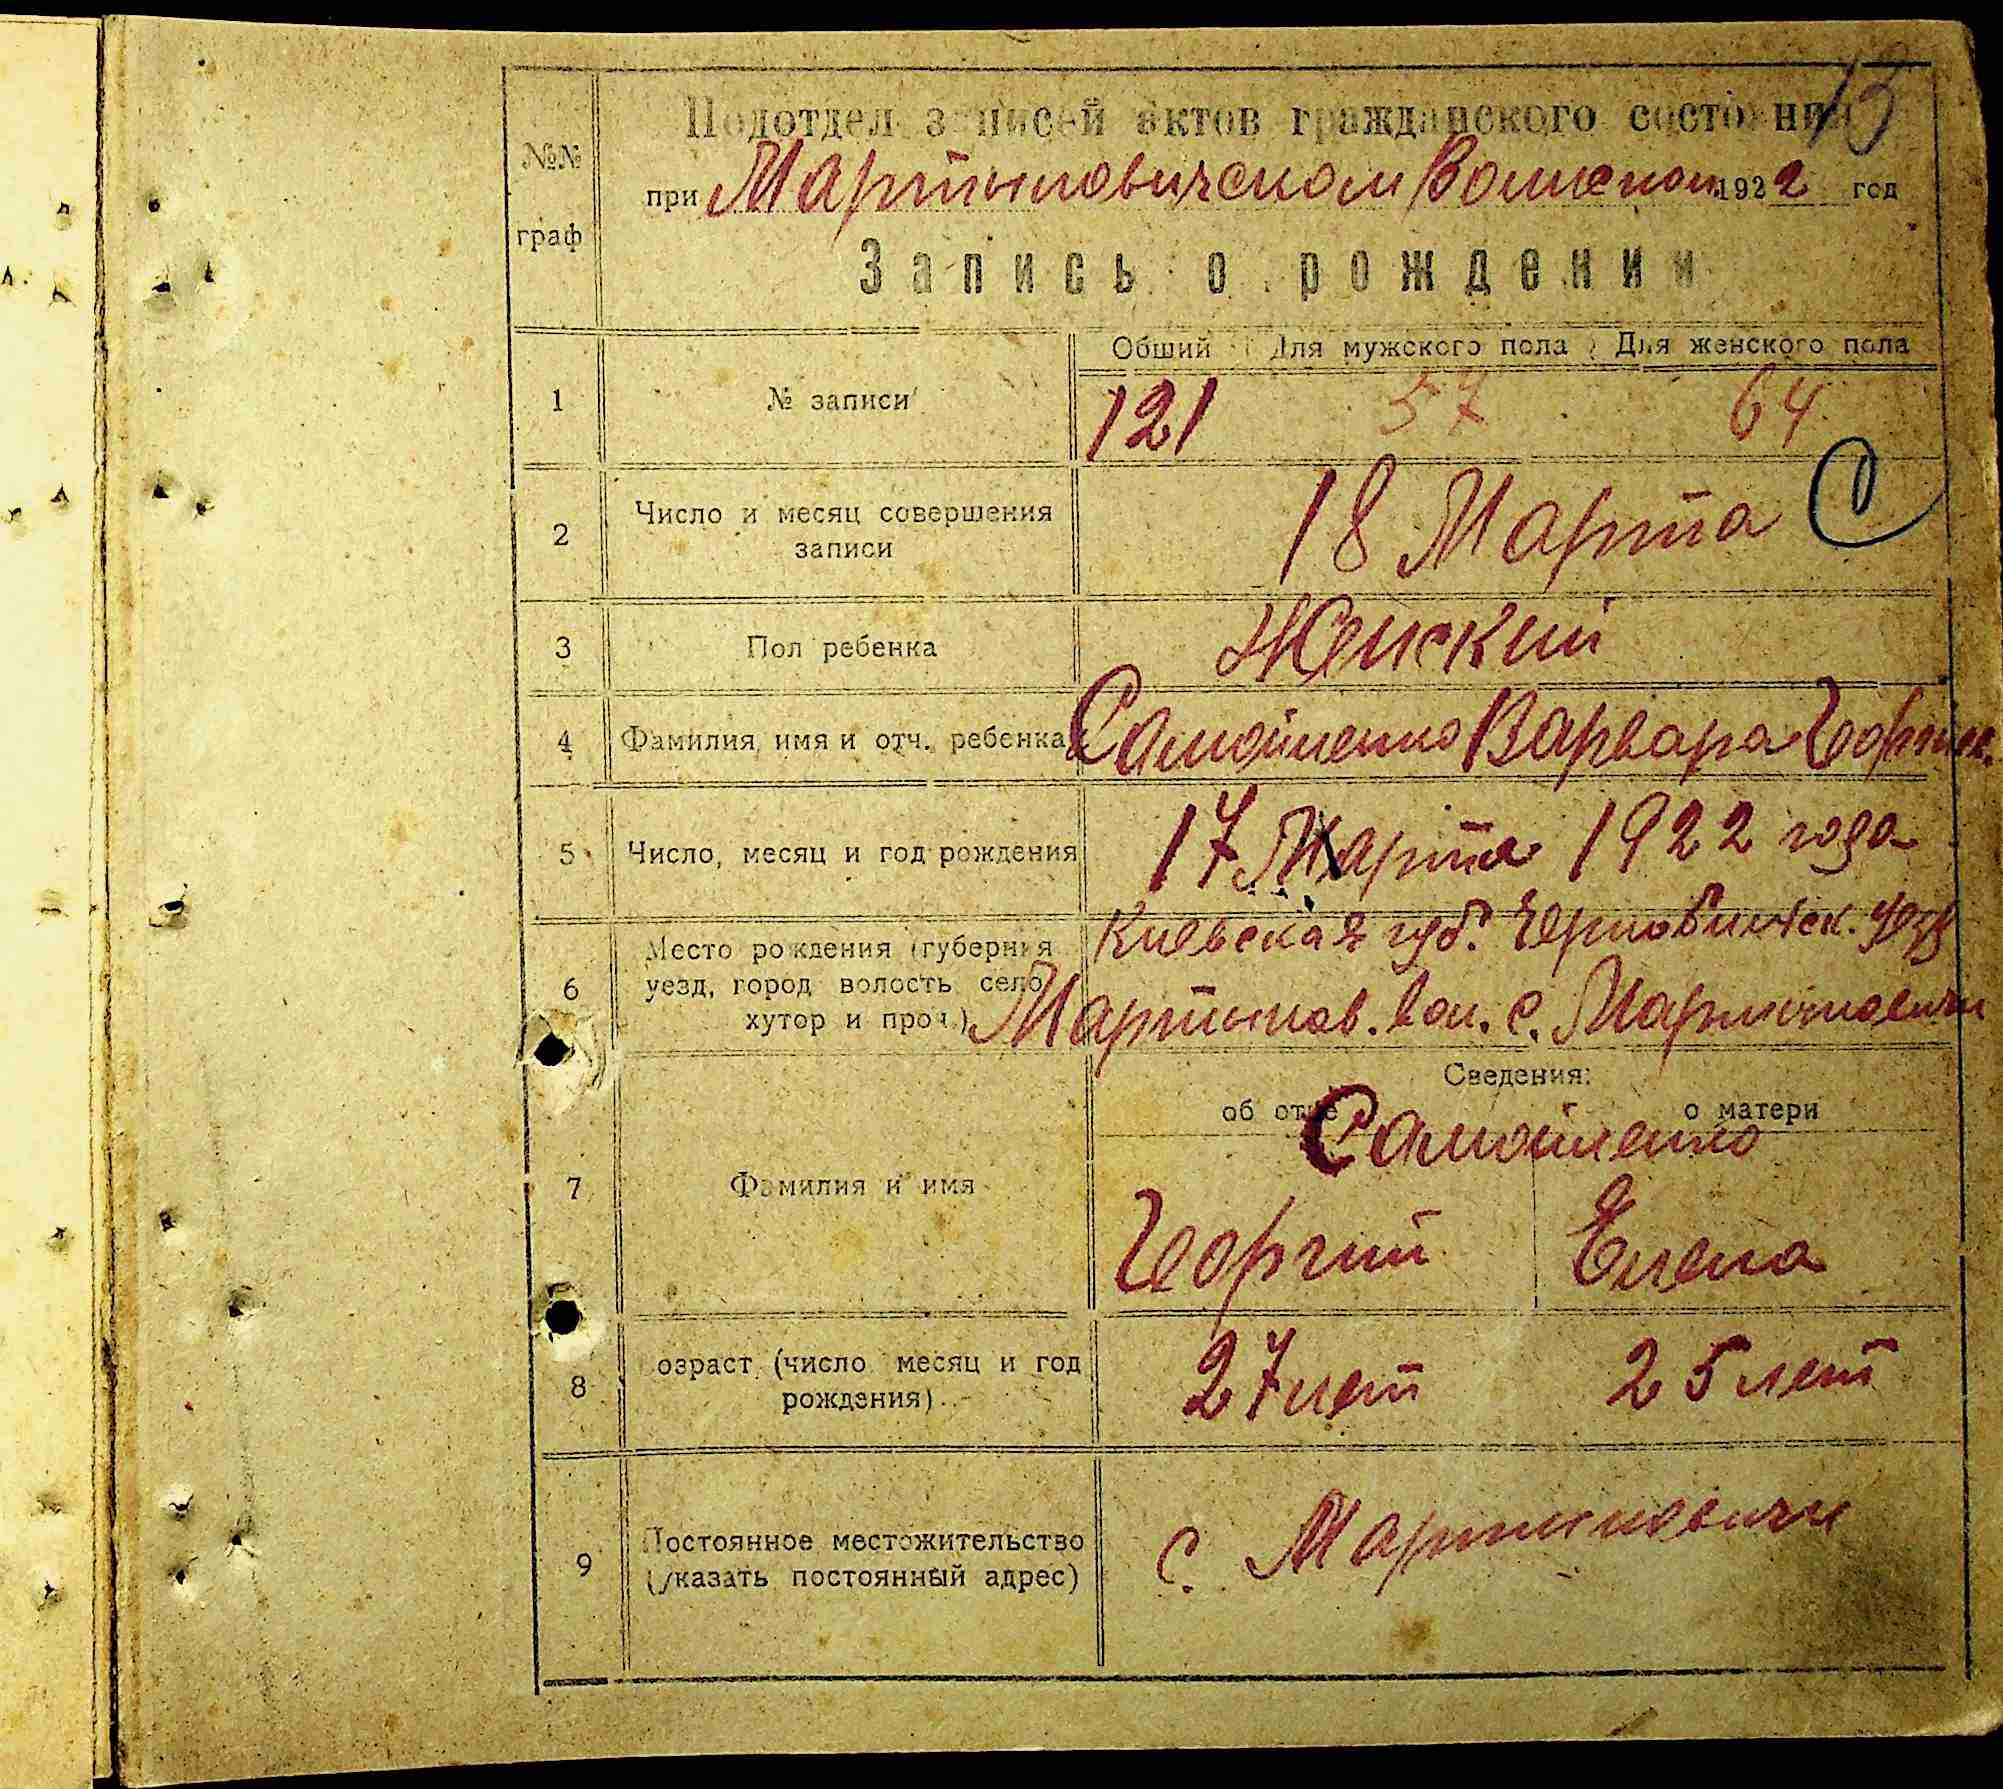 13
Подотдел записей актов гражданского состояния
№№
граф
при Мартыновичском Волиспол 1922 год
Запись о рождении
Обший Для мужского пола Для женского пола
1 № записи 121 57 64
2 Число и месяц совершения
записи
18 Марта
3 Пол ребенка Женский
4 Фамилия, имя и отч. ребенка Самойленко Варвара Георгиев.
5 Число, месяц и год рождения 17 Марта 1922 года
6 Место рождения (губерния
уезд, город волость село
хутор и проч.)
Киевская губ. Чернобыльск. уезд
Мартынов. вол. с. Мартыновичи
Сведения:
об отце о матери
7 Фамилия и имя
Самойленко
Георгий Елена
8 озраст (число месяц и год
рождения)
27 лет 25 лет
9 Постоянное местожительство
(указать постоянный адрес)
с. Мартыновичи